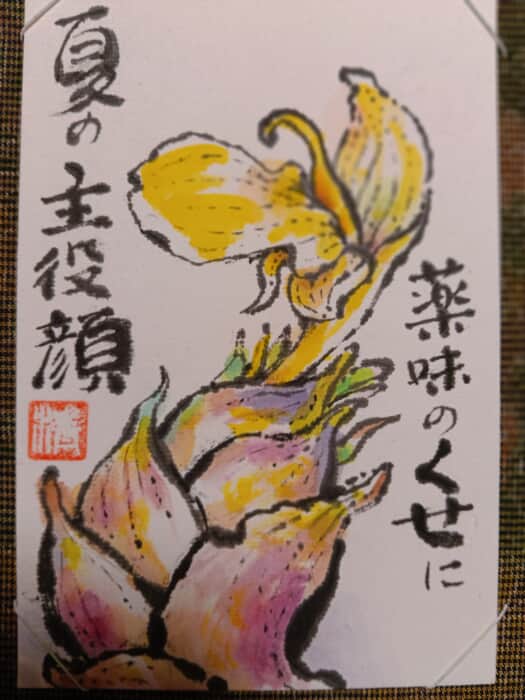 薬味のくせに
夏の主役顔